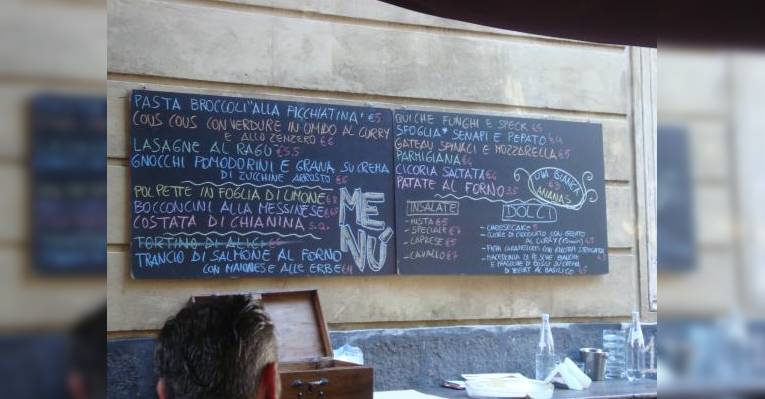 PASTA BROCCOLI "ALLA FICCHIATINA' €5
COUS COUS CON VERDURE IN UMIDO AL CURRY
E ALLO ZENZERO €6
LASAGNE AL RAGU €5.5
GNOCCHI POMODORINI E GRANA SU CREMA
DI ZUCCHINE ARROSTO €6
POLPETTE IN FOGLIA DI LIMONE €8
BOCCONCINI ALLA MESSINESE
COSTATA DI CHIANINA S.Q.
TORTINO DI ALICI
TRANCIO DI SALMONE AL FORNO
CON MAIONESE E ALLE ERBE
MENÚ
QUICHE FUNGHI E SPECK
SFOGLIA SENAPI E PEPATO
GATEAU SPINACI E MOZZARELLA €5
PARMIGIANA
CICORIA SALTATA
PATATE AL FORNO
UVA BIANCA
€3
ANANAS
INSALATE
- MISTA €5
- SPECIALE €7
- CAPRESE €5
- CAVALLO €7
DOLCI
- CHEESECAKE 5
- CUORE DI CIOCCOLATO CON GELATO
AL CURRY
- MACEDONIA DI PESCHE BIANCHE
E SU CREMA
DI YOGURT AL BASILICO